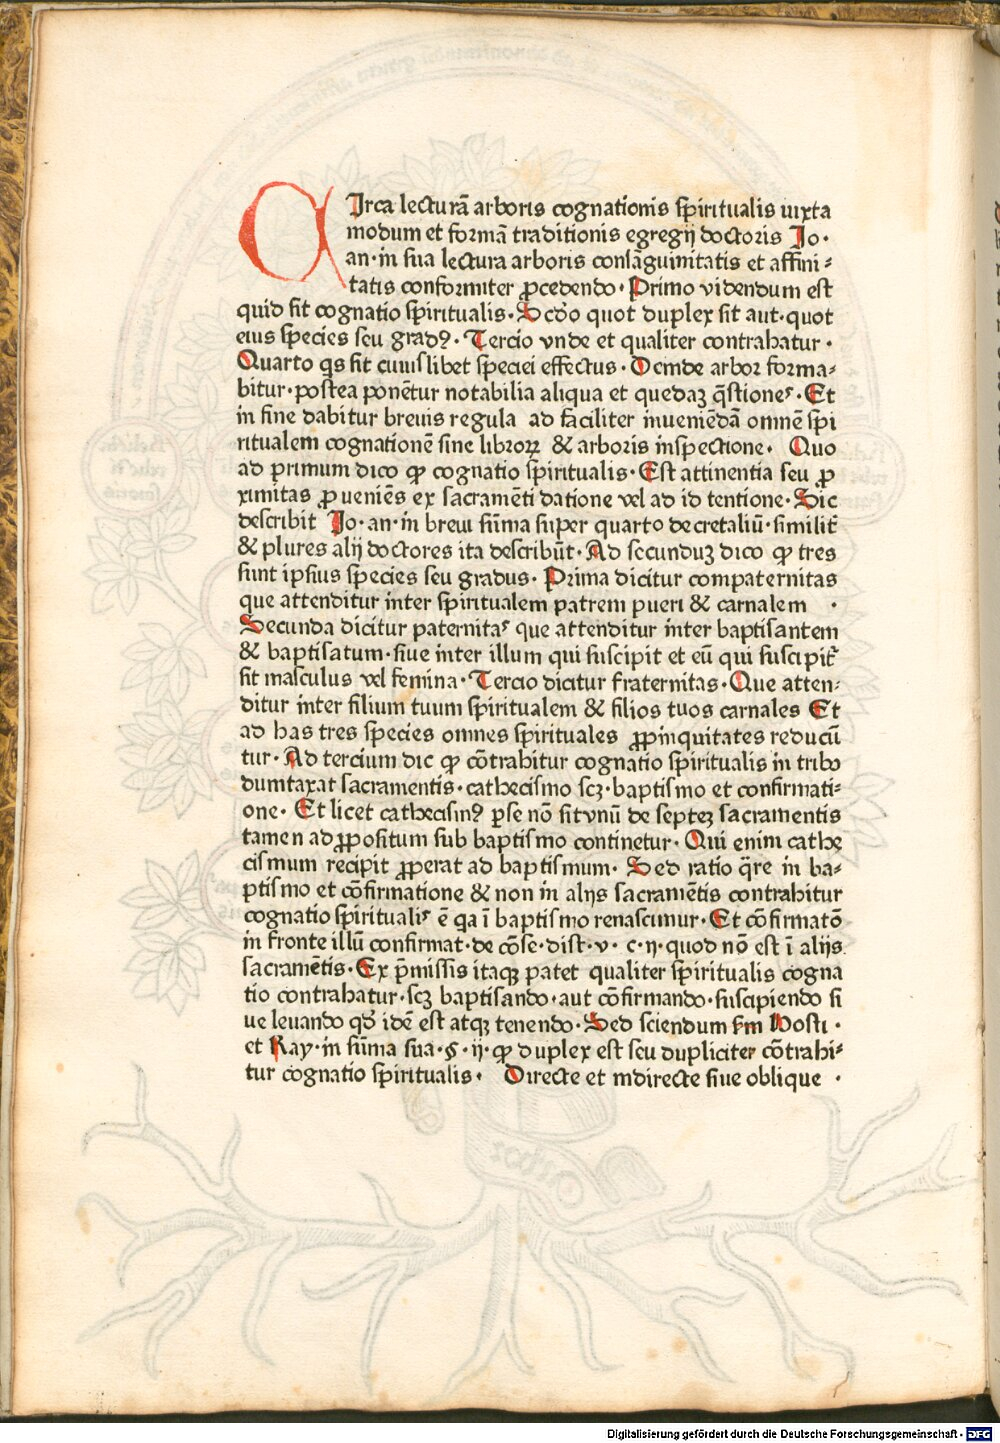 CIrca lecturā arboris cognationis spiritualis iuxta
modum et formā traditionis egregij doctoris Jo·
an·in sua lectura arboris consāguinitatis et affini⸗
tatis conformiter ꝓcedendo· Primo videndum est
quid sit cognatio spiritualis· Scd̄o quot duplex sit aut·quot
eius species seu gradꝰ· Tercio vnde et qualiter contrahatur·
Quarto qs sit cuiuslibet speciei effectus· Deinde arbor forma⸗
bitur·postea ponētur notabilia aliqua et quedaꝫ q̄stiones· Et
in fine dabitur breuis regula ad faciliter inueniēdā omnē spi
ritualem cognationē sine libroꝝ & arboris inspectione· Quo
ad primum dico ꝙ cognatio spiritualis· Est attinentia seu ꝓ
ximitas ꝓueniēs ex sacramēti datione vel ad id tentione· Sic
describit Jo·an·in breui sūma super quarto decretaliū·similit̄
& plures alij doctores ita describūt· Ad secunduꝫ dico ꝙ tres
sunt ipsius species seu gradus· Prima dicitur compaternitas
que attenditur inter spiritualem patrem pueri & carnalem ·
Secunda dicitur paternitas que attenditur inter baptisantem
& baptisatum·siue inter illum qui suscipit et eū qui suscipit̄
sit masculus vel femina· Tercio dicitur fraternitas· Que atten⸗
ditur inter filium tuum spiritualem & filios tuos carnales Et
ad has tres species omnes spirituales ꝓpinquitates reducū
tur· Ad tercium dic ꝙ cōtrahitur cognatio spiritualis in tribꝰ
dumtaxat sacramentis·cathecismo scꝫ·baptismo et confirmati⸗
one· Et licet cathecismꝰ ꝑse nō sit vnū de septeꝫ sacramentis
tamen ad ꝓpositum sub baptismo continetur· Qui enim cathe
cismum recipit ꝓperat ad baptismum· Sed ratio q̄re in ba⸗
ptismo et cōfirmatione & non in alijs sacramētis contrahitur
cognatio spiritualis ē qa ī baptismo renascimur· Et cōfirmatō
in fronte illū confirmat·de cōse·dist·v·c·ij·quod nō est ī alijs
sacramētis· Ex p̄missis itaqꝫ patet qualiter spiritualis cogna
tio contrahatur·scꝫ baptisando·aut cōfirmando·suscipiendo si
ue leuando qd̄ idē est atqꝫ tenendo· Sed sciendum sm̄ Hosti·
et Ray·in sūma sua·§·ij·ꝙ duplex est seu dupliciter cōtrahi⸗
tur cognatio spiritualis· Directe et indirecte siue oblique ·
Digitalisierung gefördert durch die Deutsche Forschungsgemeinschaft - DFG